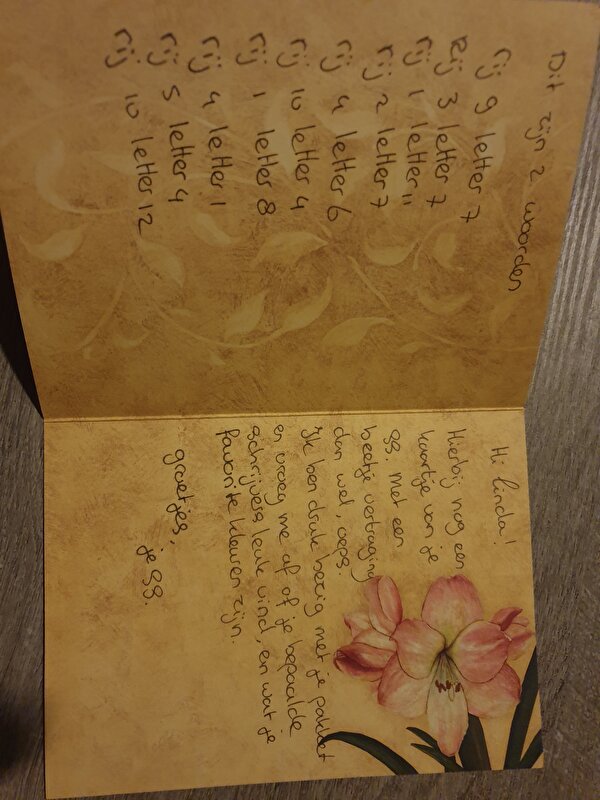 Dit zijn 2 woorden
Rij 9 letter 7
Rij 3 letter 7
Rij 1 letter 11
Rij 2 letter 7
Rij 4 letter 6
Rij 10 letter 4
Rij 1 letter 8
Rij 4 letter 1
Rij 5 letter 4
Rij 10 letter 12
Hi Linda!
Hierbij nog een
kaartje van je
ss. met een
beetje vertraging
dan wel, oeps.
Ik ben druk bezig met je pakket
en vroeg me af of je bepaalde
schrijvers leuk vind, en wat je
favoriete kleuren zijn.
groetjes,
je ss.